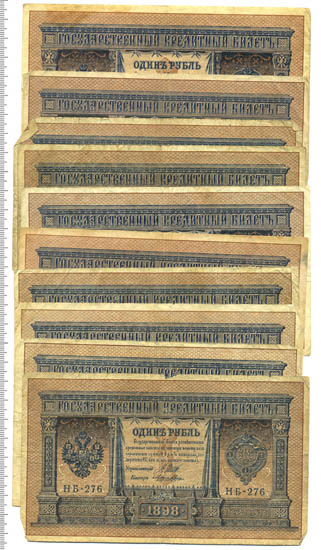 ГОСУДАРСТВЕННЫЙ КРЕДИТНЫЙ БИЛЕТЪ.
ОДИНЪ РУБЛЬ
ГОСУДАРСТВЕННЫЙ КРЕДИТНЫЙ БИЛЕТЪ.
ГОСУДАРСТВЕННЫЙ КРЕДИТНЫЙ БИЛЕТЪ.
ГОСУДАРСТВЕННЫЙ КРЕДИТНЫЙ БИЛЕТЪ.
ГОСУДАРСТВЕННЫЙ КРЕДИТНЫЙ БИЛЕТЪ.
ГОСУДАРСТВЕННЫЙ КРЕДИТНЫЙ
ГОСУДАРСТВЕННЫЙ КРЕДИТНЫЙ БИЛЕТЪ.
ГОСУДАРСТВЕННЫЙ КРЕДИТНЫЙ БИЛЕТЪ.
ГОСУДАРСТВЕННЫЙ КРЕДИТНЫЙ БИЛЕТЪ.
ГОСУДАРСТВЕННЫЙ КРЕДИТНЫЙ БИЛЕТЪ.
ОДИНЪ РУБЛЬ
НБ-276 НБ-276
1898